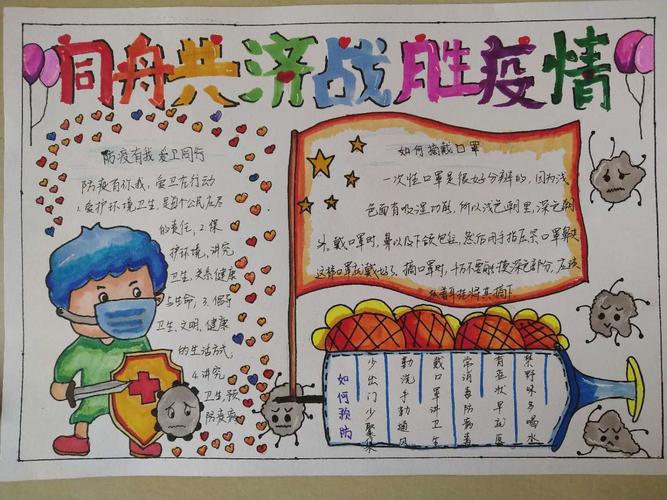 同舟共济战胜疫情
防疫有我 爱卫同行
防疫有你我，爱卫在行动
1.爱护环境卫生，是每个公民应尽
的责任，2.保
护环境，讲究
卫生，关系健康
与生命，3.倡导
卫生、文明、健康
的生活方式
4.讲究
卫生，预
防疾病
如何摘戴口罩
一次性口罩是很好分辨的，因为浅
色面有吸湿功能，所以浅色朝里，深色朝
外，戴口罩时，鼻以及下颌包住，然后用手指压紧口罩鼻夹
这样口罩就戴好了，摘口罩时，千万不要触摸深色部分，应该
将其摘下
如何预防
少出门少聚集
勤洗手勤通风
戴口罩讲卫生
常消毒防病毒
有症状早就医
禁野味多喝水